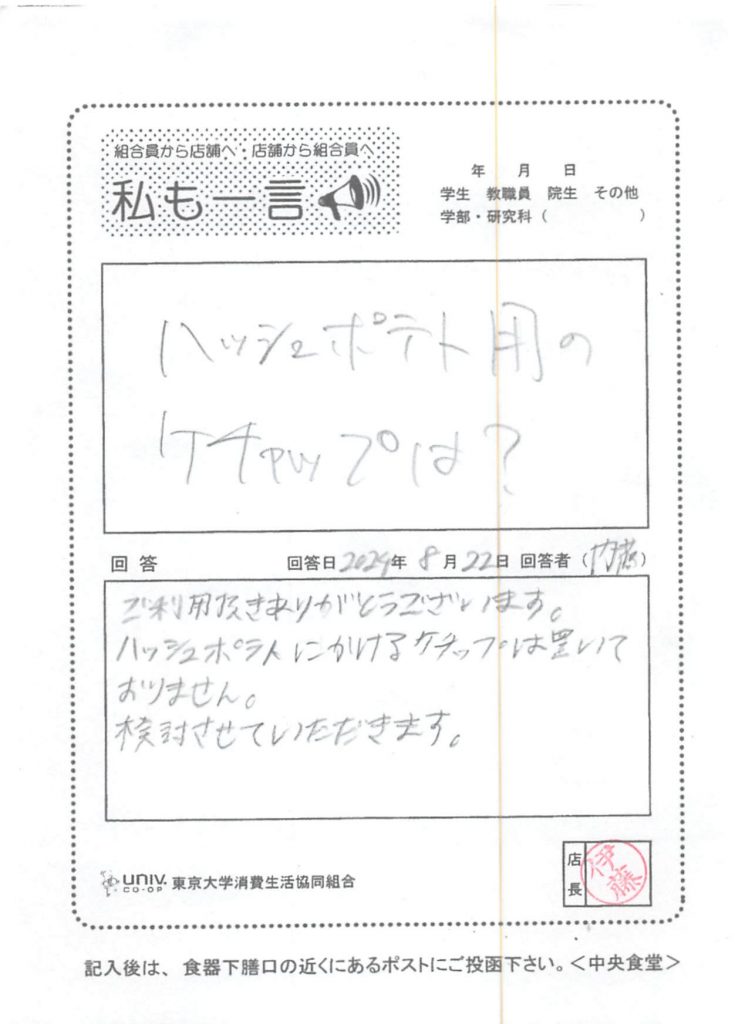 組合員から店舗へ・店舗から組合員へ
私も一言
年 月 日
学生 教職員 院生 その他
学部・研究科（ ）
ハッシュポテト用の
ケチャップは？
回答 回答日2024年8月22日 回答者（内藤）
ご利用頂きありがとうございます。
ハッシュポテトにかけるケチャップは置いて
おりません。
検討させていただきます。
UNIV. CO-OP 東京大学消費生活協同組合
店長 伊藤
記入後は、食器下膳口の近くにあるポストにご投函下さい。＜中央食堂＞